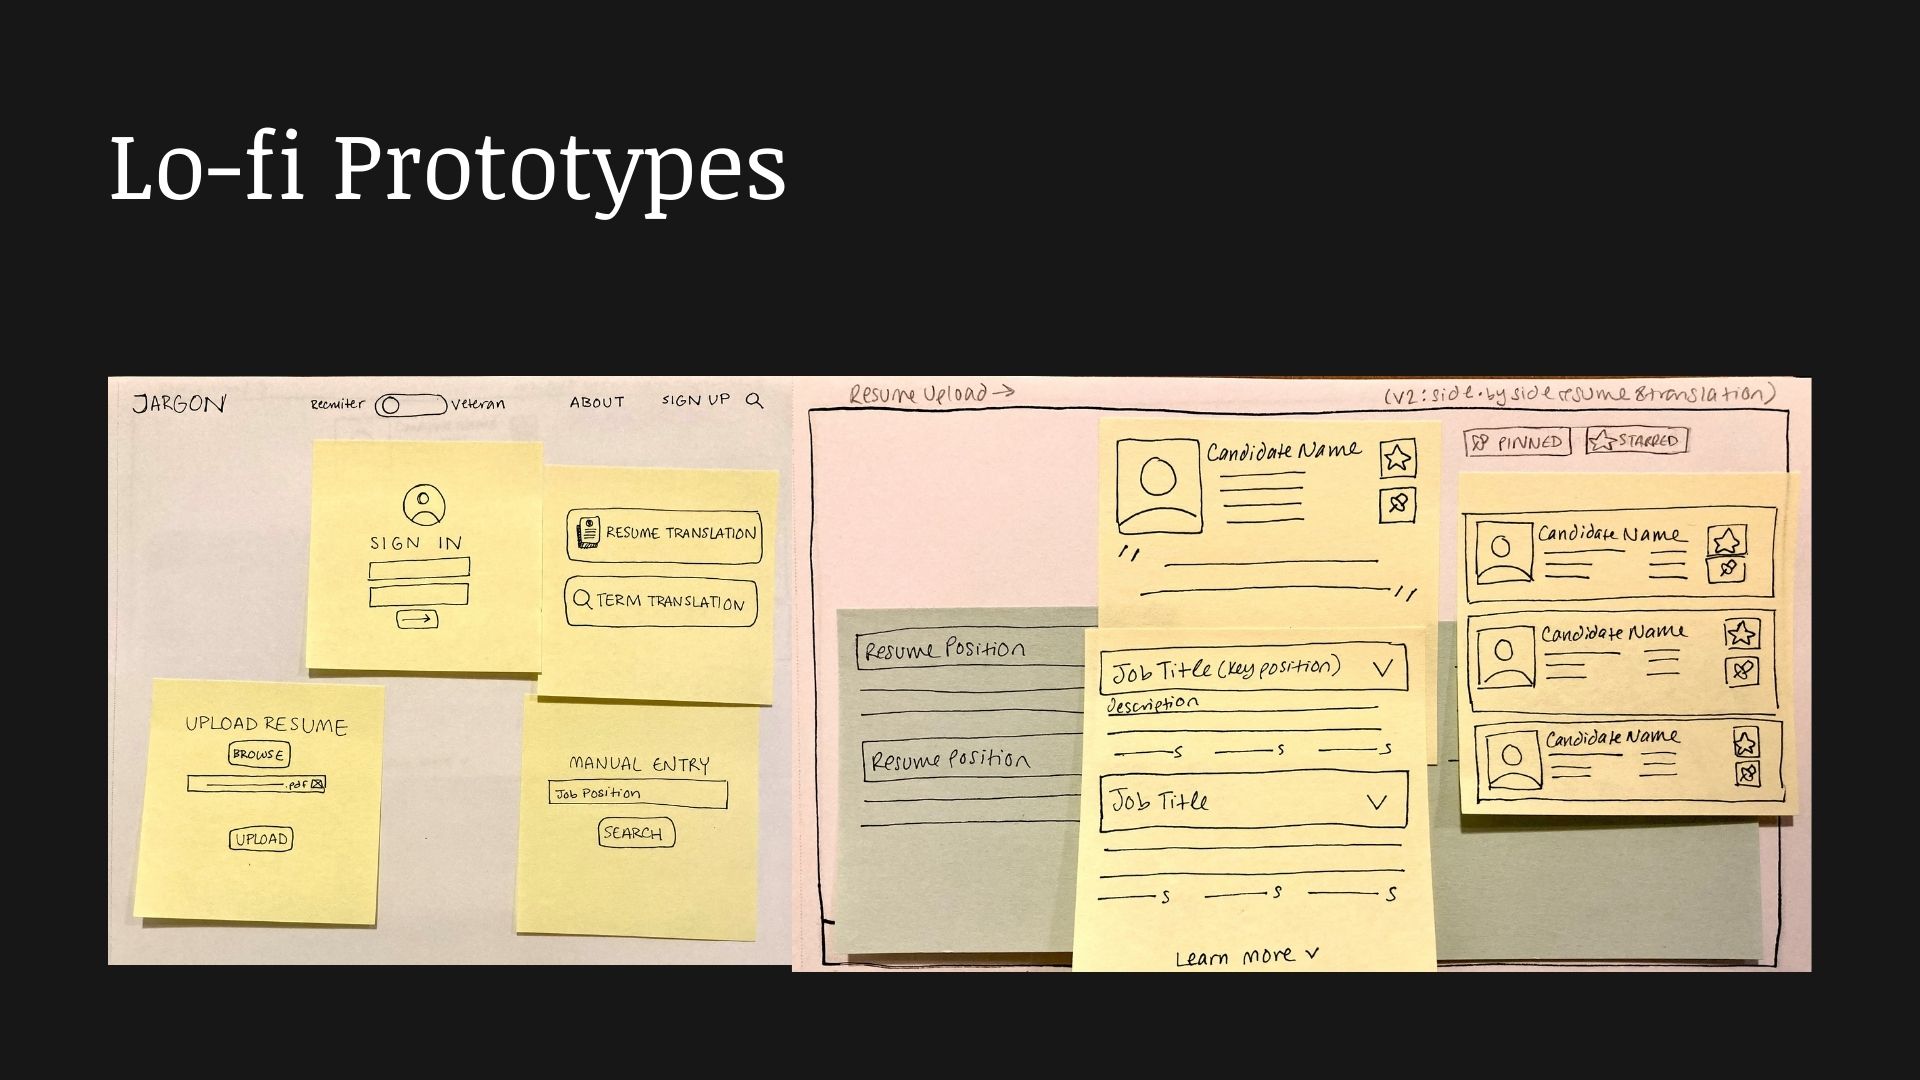 Lo-fi Prototypes
JARGON
Recruiter
Veteran
ABOUT
SIGN UP
SIGN IN
RESUME TRANSLATION
TERM TRANSLATION
UPLOAD RESUME
BROWSE
.pdf
UPLOAD
MANUAL ENTRY
Job Position
SEARCH
Resume Upload →
(V2: side.by side resume & translation)
PINNED
STARRED
Candidate Name
"
"
Resume Position
Resume Position
Job Title (key position)
description
s
s
s
Job Title
s
s
s
Learn more
Candidate Name
Candidate Name
Candidate Name